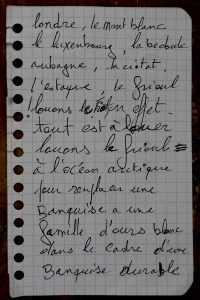 londre, le mont blanc
le luxembourg, la bedoule
aubagne, la ciotat,
l'estaque, le frioul
louons en effet
tout est à louer
louons le frioul
à l'océan arctique
pour remplacer une
Banquise a une
famille d'ours blanc
dans le cadre d'une
Banquise durable